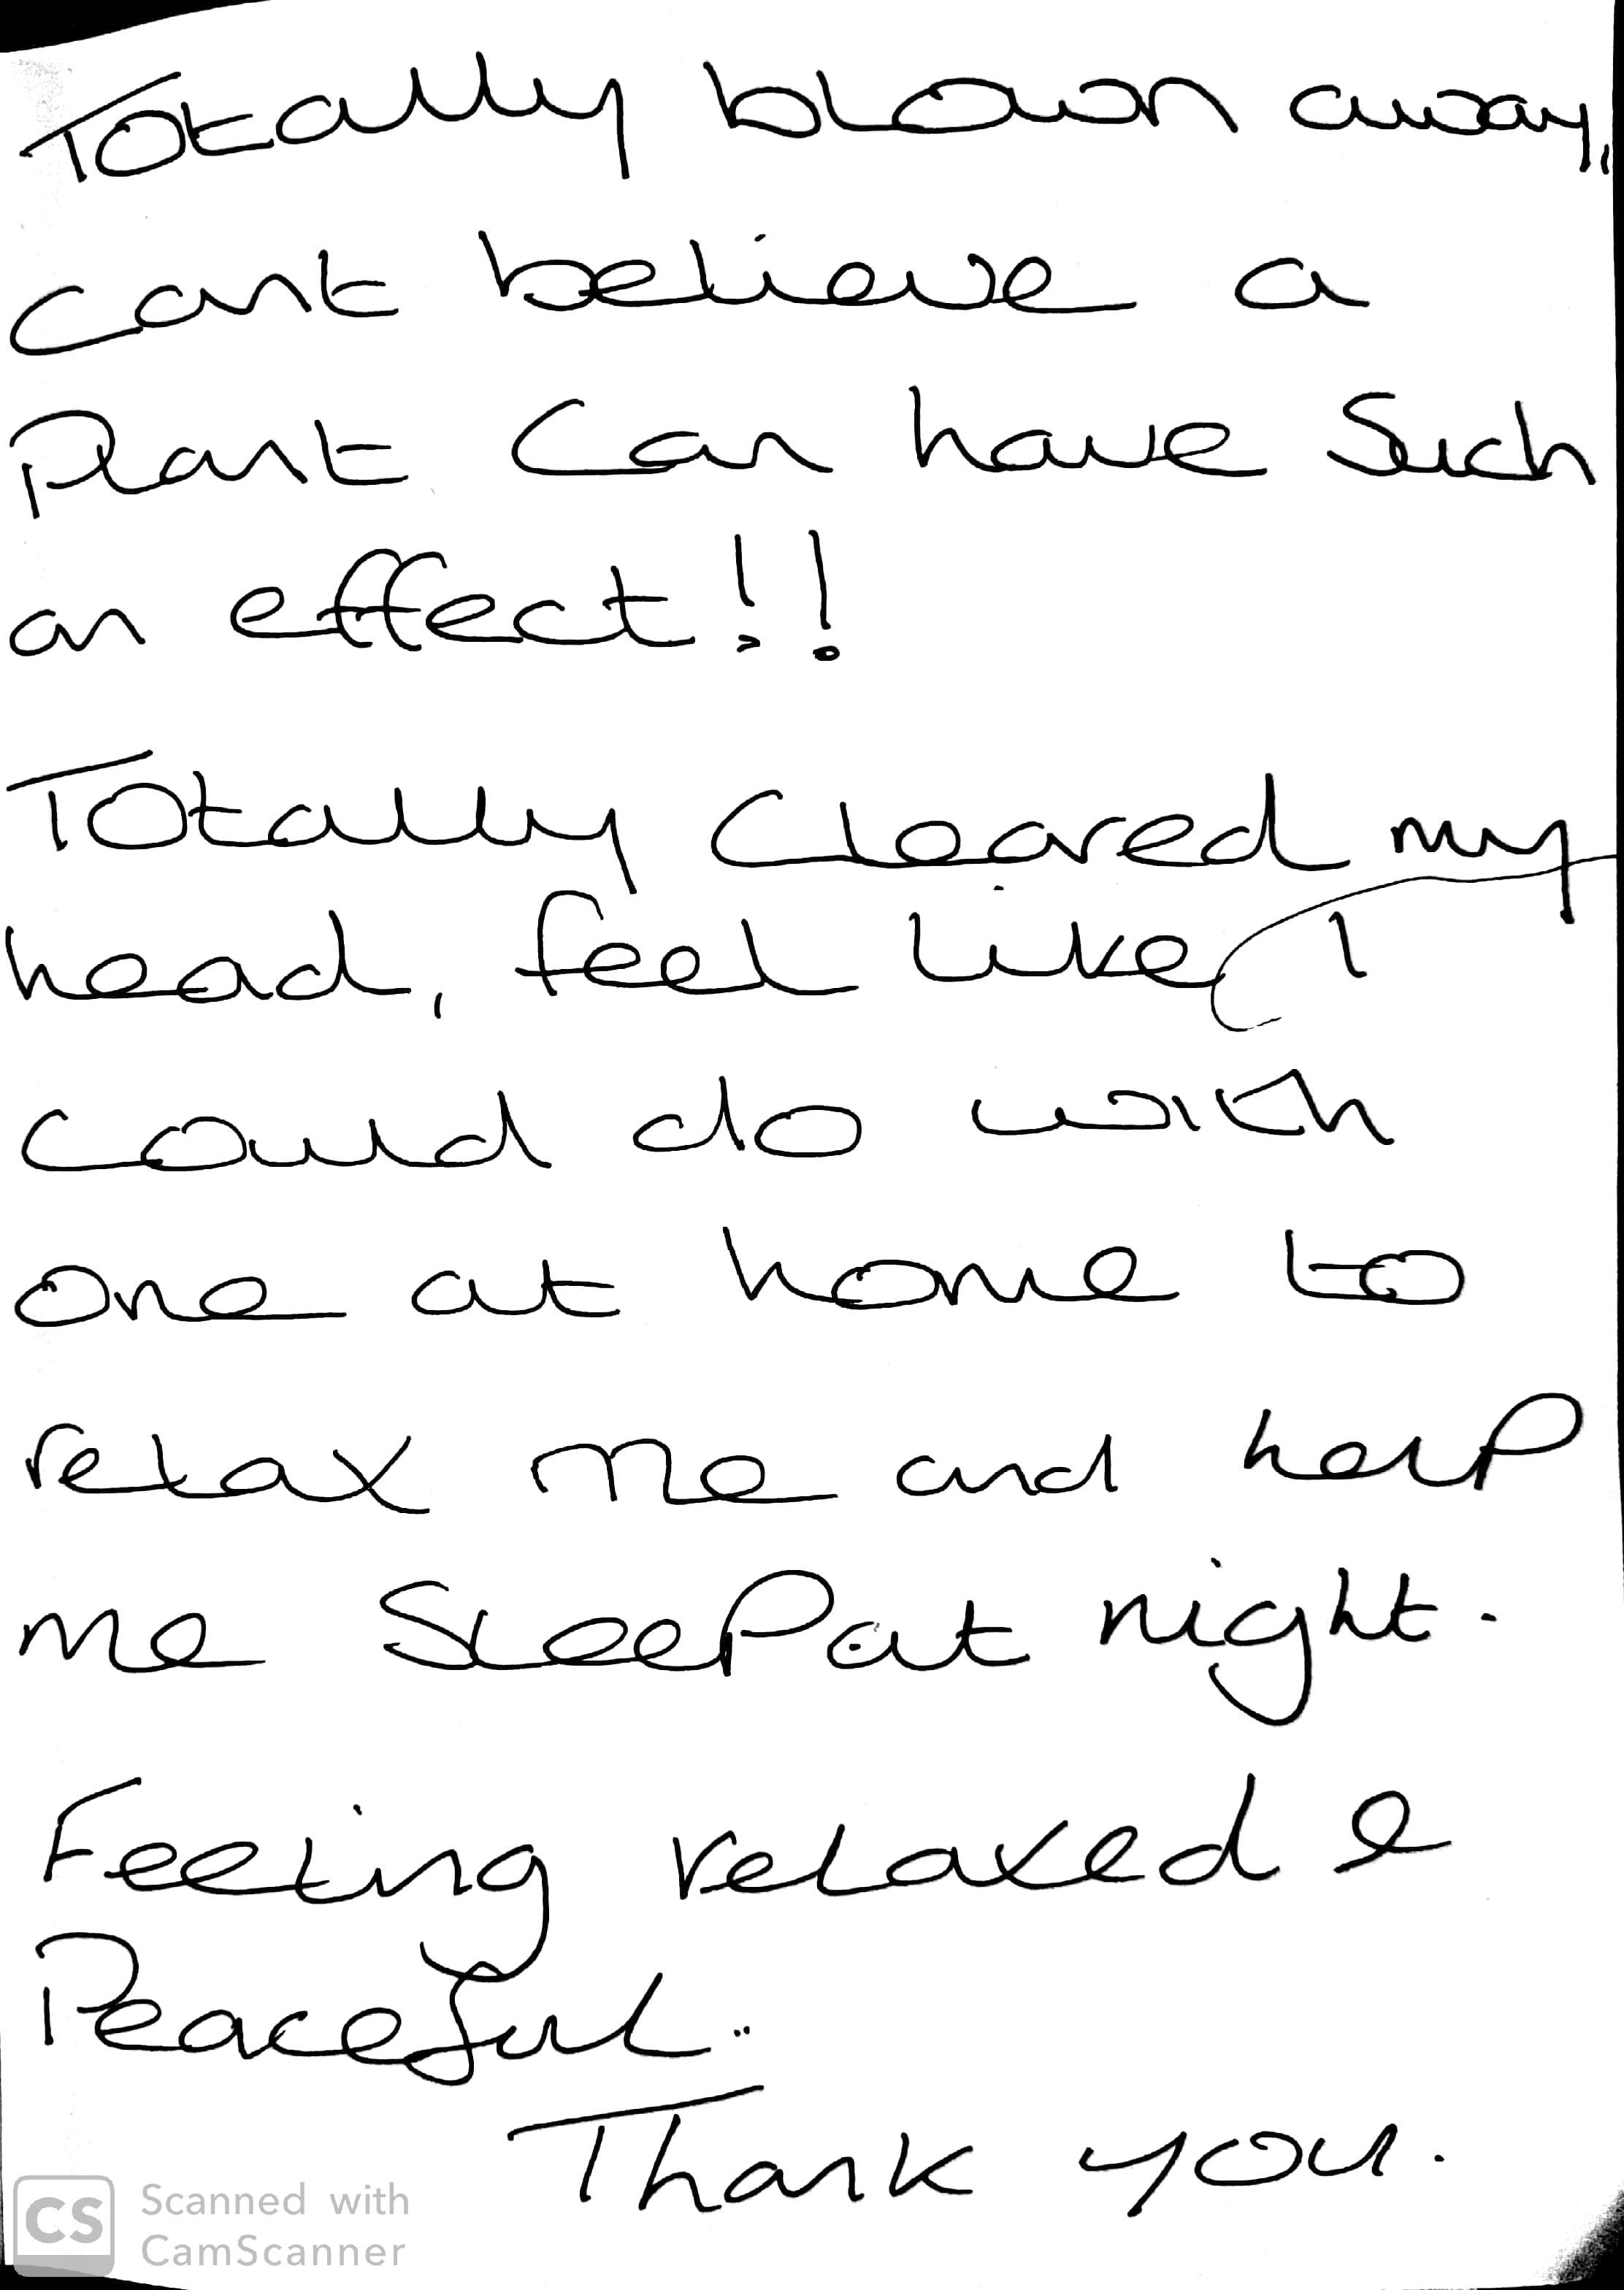 Totally blown away,
cant believe a
Plant Can have Such
an effect!!
Totally Cleared my
head, feel like I
could do with
one at home to
relax me and help
me SleeP at night.
Feeling relaxed &
Peaceful..
Thank you.
CS Scanned with
CamScanner